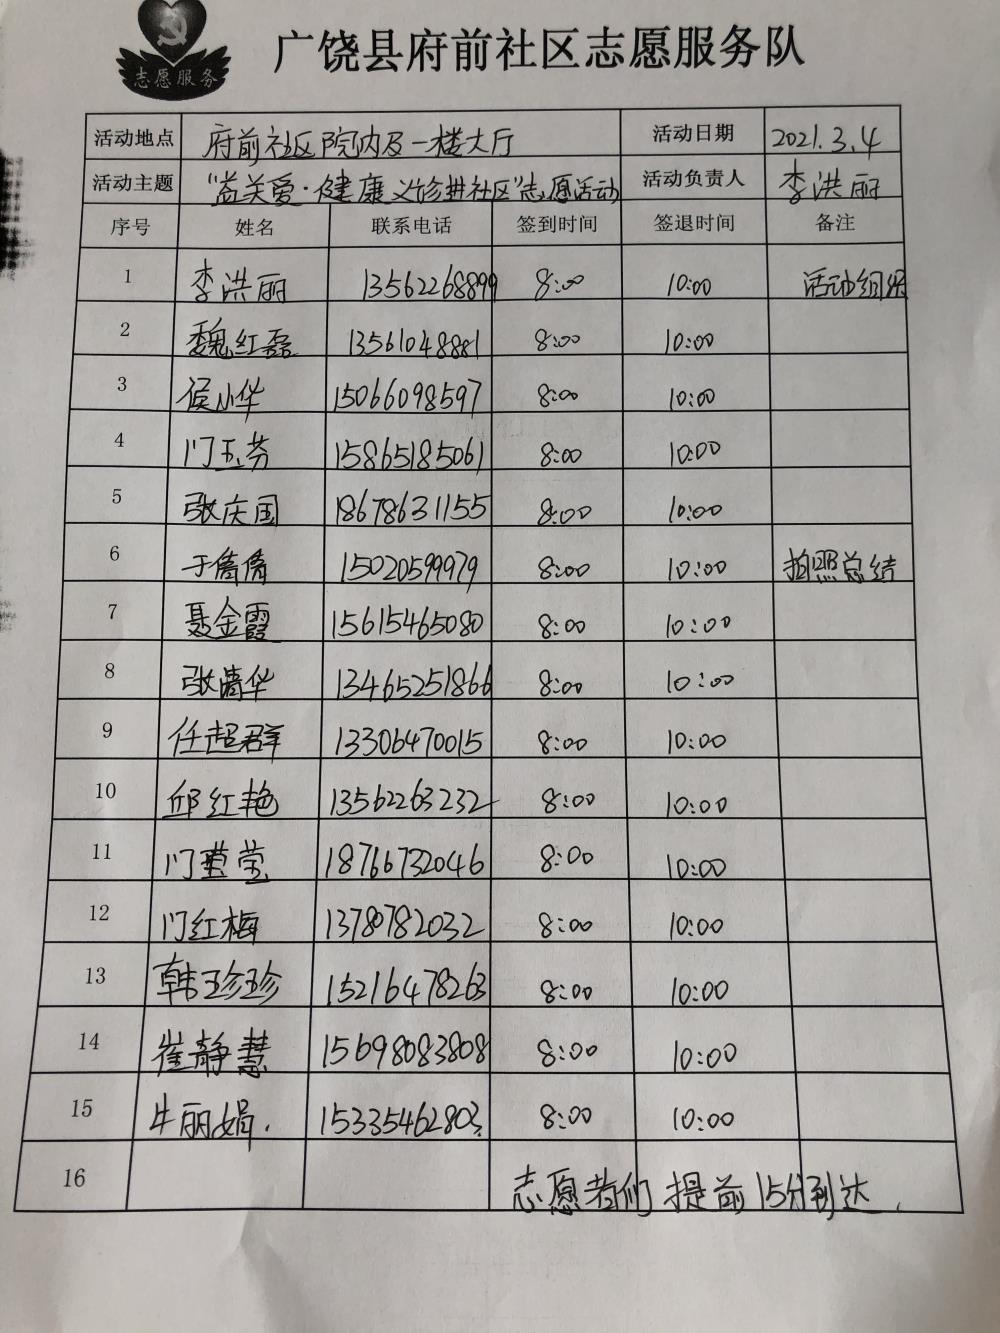 志愿服务
广饶县府前社区志愿服务队
活动地点 府前社区院内及一楼大厅 活动日期 2021.3.4
活动主题 “益关爱·健康义诊进社区”志愿活动 活动负责人 李洪丽
序号 姓名 联系电话 签到时间 签退时间 备注
1 李洪丽 13562268899 8:00 10:00 活动组织
2 魏红磊 13561048881 8:00 10:00
3 侯小华 15066098597 8:00 10:00
4 门玉芬 15865185061 8:00 10:00
5 张庆国 18678631155 8:00 10:00
6 于倩倩 15020599979 8:00 10:00 拍照总结
7 聂金霞 15615465080 8:00 10:00
8 张清华 13465251866 8:00 10:00
9 任超群 13306470015 8:00 10:00
10 邱红艳 13562263232 8:00 10:00
11 门莹莹 18766732046 8:00 10:00
12 门红梅 13780782032 8:00 10:00
13 韩珍珍 15216478263 8:00 10:00
14 崔静慧 15698083808 8:00 10:00
15 牛丽娟. 15335462803 8:00 10:00
16 志愿者们提前15分到达.